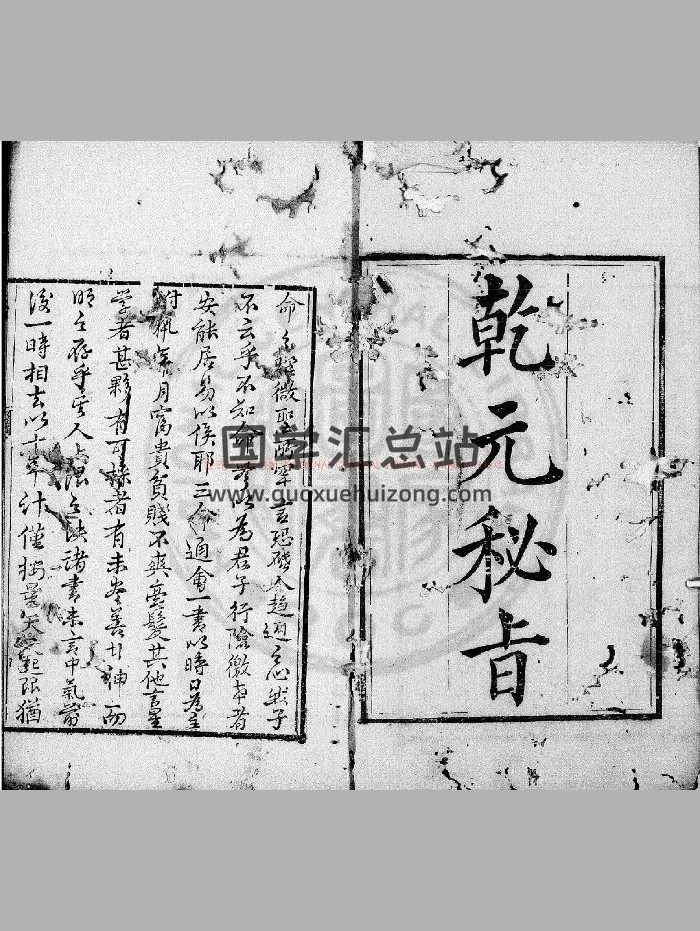 乾元秘旨
命之理微聖罕言恐礙人趨避之心然子
不云乎不知命無以為君子行險徼幸者
安能居易以俟耶三命通會一書以時日為主
附承年月富貴貧賤不爽毫髮其他言星
学者甚夥有可採者有未尽善者神而
明之存乎其人與限之訣諸書未言中氣前
後一時相去以十年计僅按量天尺起限猶
国学汇总站
www.guoxuehuizong.com